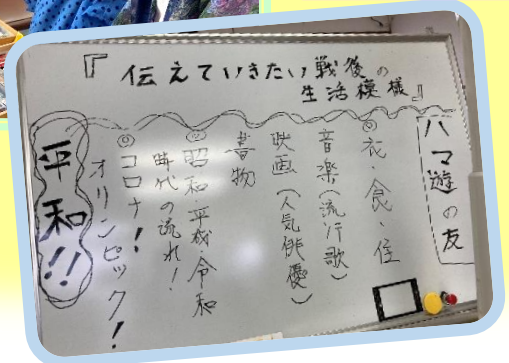 『伝えていきたい戦後の
生活模様』
ハマ遊の友
◎衣・食・住
音楽(流行歌)
映画(人気俳優)
書物
◎昭和・平成・令和
時代の流れ!
◎コロナ!
オリンピック!
平和!!